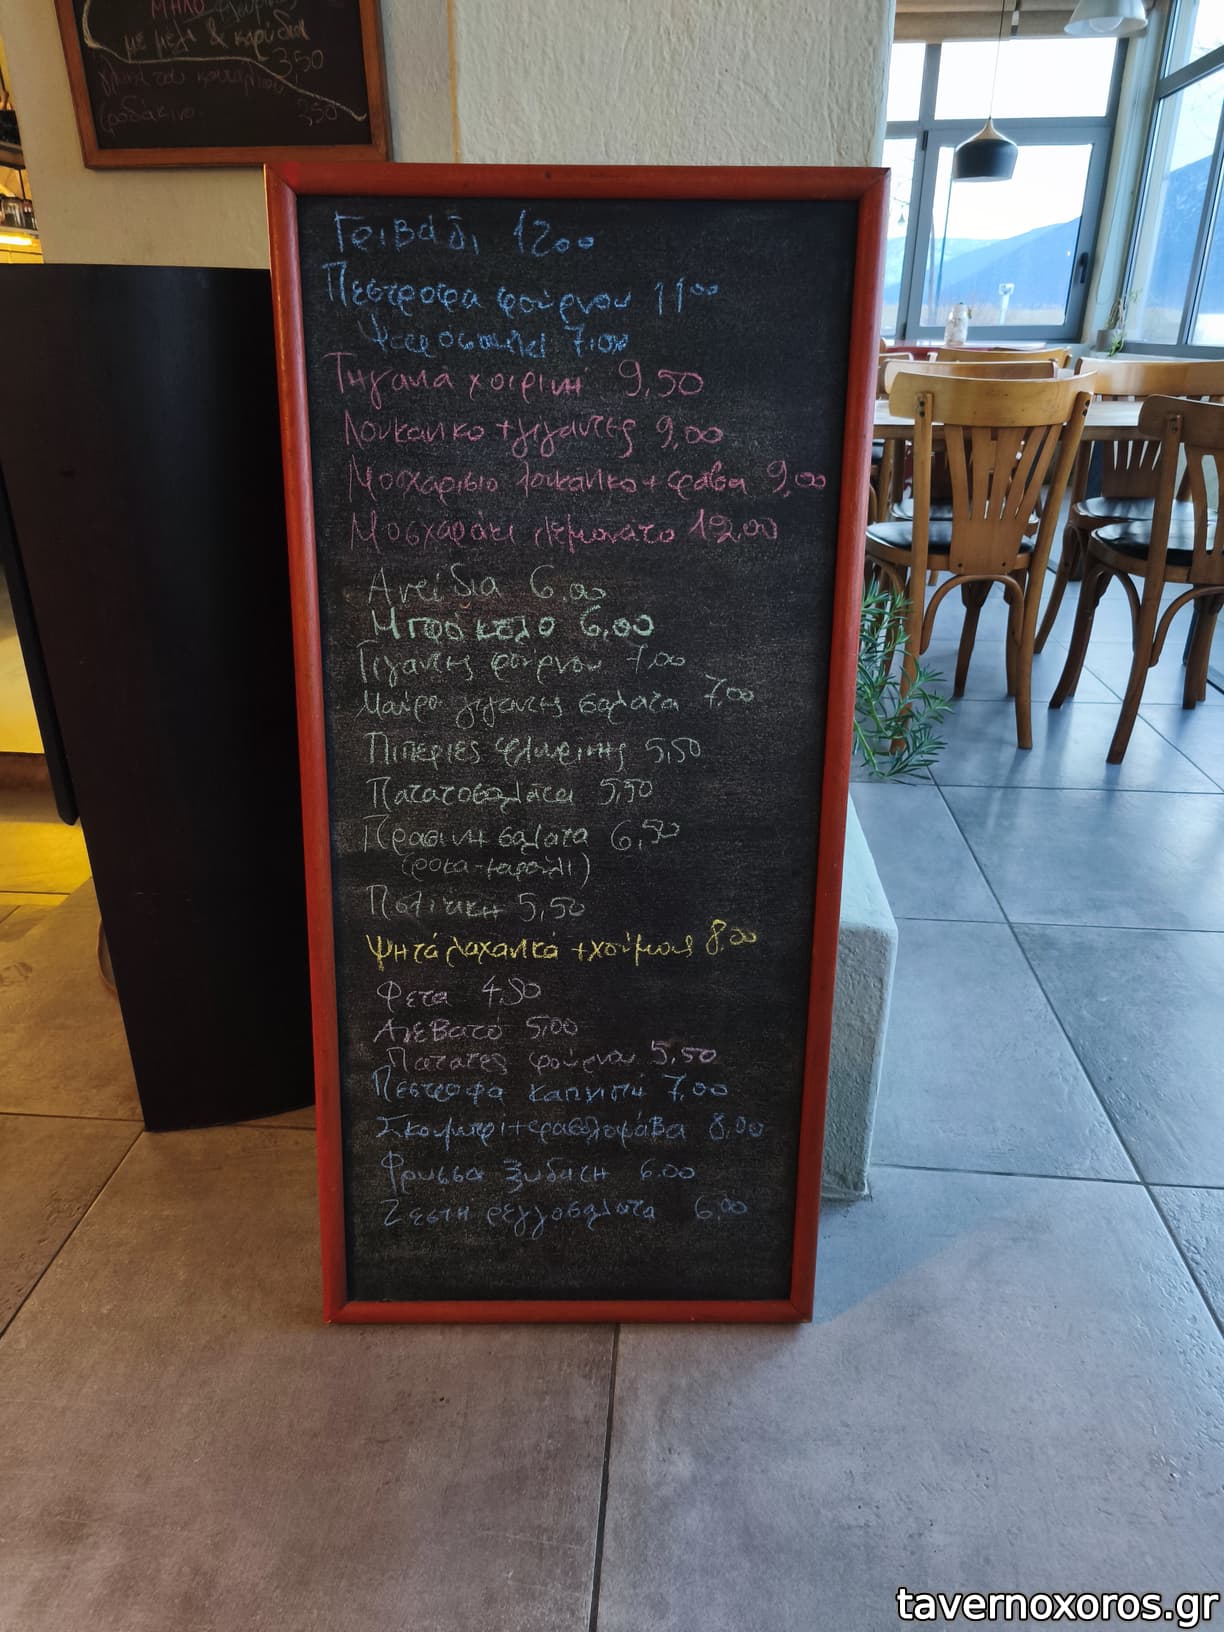 ΜΗΛΟ
με μέλι & καρύδια
3,50
γλυκά του κουταλιού,
ροδάκινο 3,50
Γριβάδι 12 00
Πεστροφα φούρνου 11 00
Ψαροσουπα 7,00
Τηγανιά χοιρινή 9,50
Λουκανικο + γιγαντες 9,00
Μοσχαρισιο λουκανικο + φαβα 9,00
Μοσχαράκι λεμονατο 12,00
Αντίδια 6,00
Μπρόκολο 6,00
Γιγαντες φούρνου 7,00
Μαύροι γιγαντες σαλατα 7,00
Πιπεριες Φλωρίνης 5,50
Πατατοσαλάτα 5,50
Πρασινη σαλατα 6,50
(ροκα-μαρούλι)
Πολίτικη 5,50
Ψητά λαχανικά + χούμους 8,00
Φετα 4,50
Ανεβατό 5,00
Πατατες φούρνου 5,50
Πεστροφα καπνιστή 7,00
Σκουμπρί + φασολοφάβα 8,00
Φρισσα ξυδατη 6,00
Ζεστη ρεγγοσαλατα 6,00
tavernoxoros.gr